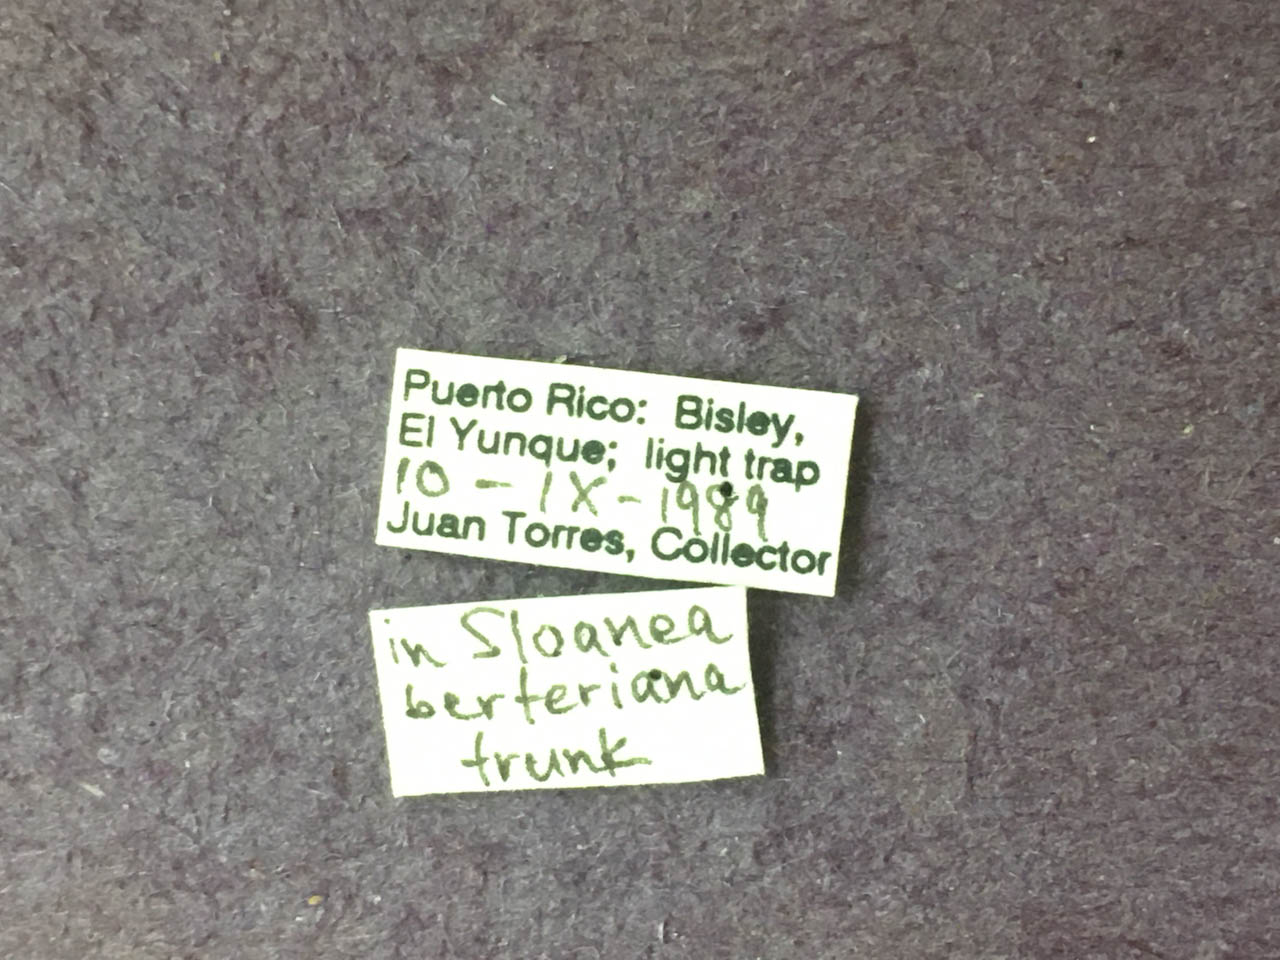 Puerto Rico: Bisley,
El Yunque; light trap
10 - IX - 1989
Juan Torres, Collector
in Sloanea
berteriana
trunk